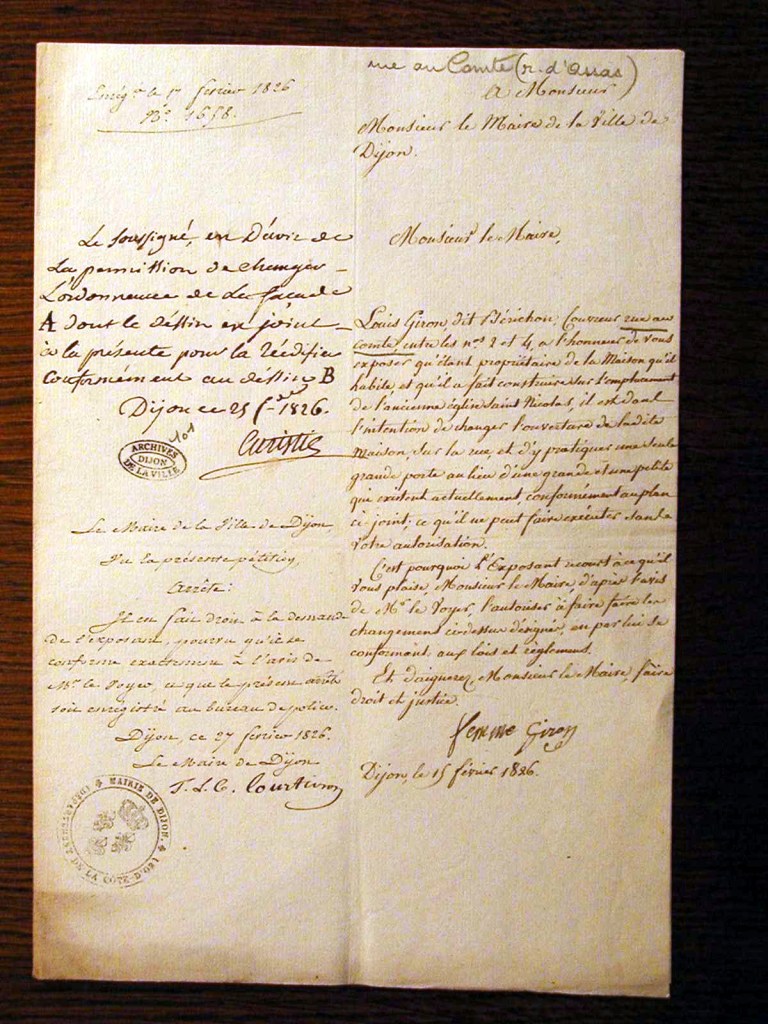 Enreg.t le 17 fevrier 1826
N.o 1658.
Le Soussigné, en D'avis de
La permission de changer
L'ordonnance de la façade
A dont le dessin est joint
à la présente pour la Réédifier
Conformément au dessin B
Dijon ce 25 f.er 1826.
101
ARCHIVES
DIJON
DE LA VILLE
Le Maire de la Ville de Dijon,
Vu la présente pétition,
Arrête:
Il est fait droit à la demande
de l'exposant, pourvu qu'il se
conforme exactement à l'avis de
Mr. le Voyer, et que le présent arrêté
soit enregistré au bureau de police.
Dijon, ce 27 fevrier 1826.
Le Maire de Dijon
T. L. C. Courtivron
MAIRIE DE DIJON
DE LA COTE-D'OR
rue au Comte (r. d'Assas)
A Monsieur
Monsieur le Maire de la Ville de
Dijon.
Monsieur le Maire,
Louis Giron, dit Bérichon, Couvreur rue au
comte, entre les nos. 2 et 4, a l'honneur de vous
exposer qu'étant propriétaire de la Maison qu'il
habite et qu'il a fait construire sur l'emplacement
de l'ancienne église Saint Nicolas, il est dans
l'intention de changer l'ouverture de ladite
maison, sur la rue, et d'y pratiquer une seule
grande porte au lieu d'une grande et une petite
qui existent actuellement conformément au plan
ci-joint; ce qu'il ne peut faire exécuter sans
Votre autorisation.
C'est pourquoi l'Exposant recourt à ce qu'il
vous plaise, Monsieur le Maire, d'après l'avis
de Mr. le Voyer, l'autoriser à faire faire les
changemens ci-dessus désignés, en par lui se
conformant aux lois et règlemens.
Et daignerez, Monsieur le Maire, faire
droit et justice.
femme Giron
Dijon, le 15 février 1826.